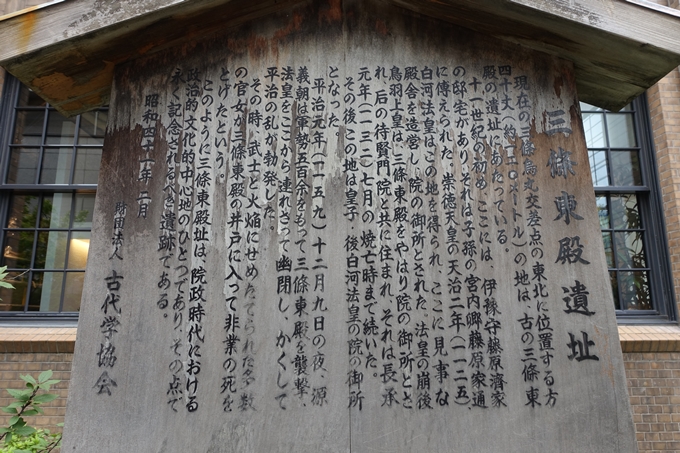 三條東殿遺址
現在の三條烏丸交差点の東北に位置する方
四十丈(約一二〇メートル)の地は、古の三條東
殿の遺址にあたっている。
十一世紀の初め、ここには、伊豫守藤原濟家
の邸宅があり、それは子孫の宮内卿藤原家通
に傳えられた。崇徳天皇の天治二年(一一二五)、
白河法皇はこの地を得られ、ここに見事な
殿舎を造営し、院の御所とされた。法皇の崩後
鳥羽上皇は、三條東殿をやはり院の御所とさ
れ、后の待賢門院と共に住まれ、それは長承
元年(一一三二)七月の焼亡時まで続いた。
その後この地は皇子、後白河法皇の院の御所
となった。
平治元年(一一五九)十二月九日の夜、源
義朝は軍勢五百余をもって三條東殿を襲撃、
法皇をここから連れさって幽閉し、かくして
平治の乱が勃発した。
その時、武士と火焔にせめたてられた多数
の官女が三條東殿の井戸に入って非業の死を
とげたという。
このように三條東殿址は、院政時代における
政治的文化的中心地のひとつであり、その点で
永く記念されるべき遺跡である。
昭和四十一年二月
財団法人 古代学協会